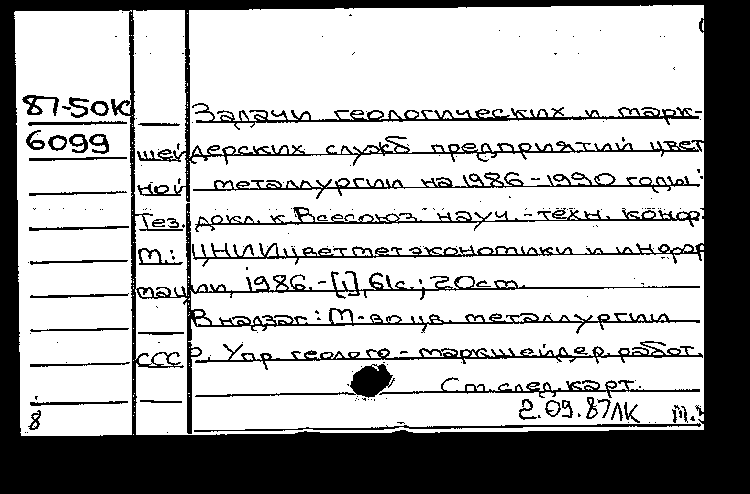 87-50К Задачи геологических и марк-
6099 шейдерских служб предприятий цвет
ной металлургии на 1986-1990 годы:
Тез. докл. к Всесоюз. науч.-техн. конф.
М.: ЦНИИцветмет экономики и информ
мации, 1986.-[1], 61с.; 20см.
В надзаг.: М-во цв. металлургии
СССР, Упр. геолого-маркшейдер. работ.
См. след. карт.
8 2.09.87ЛК